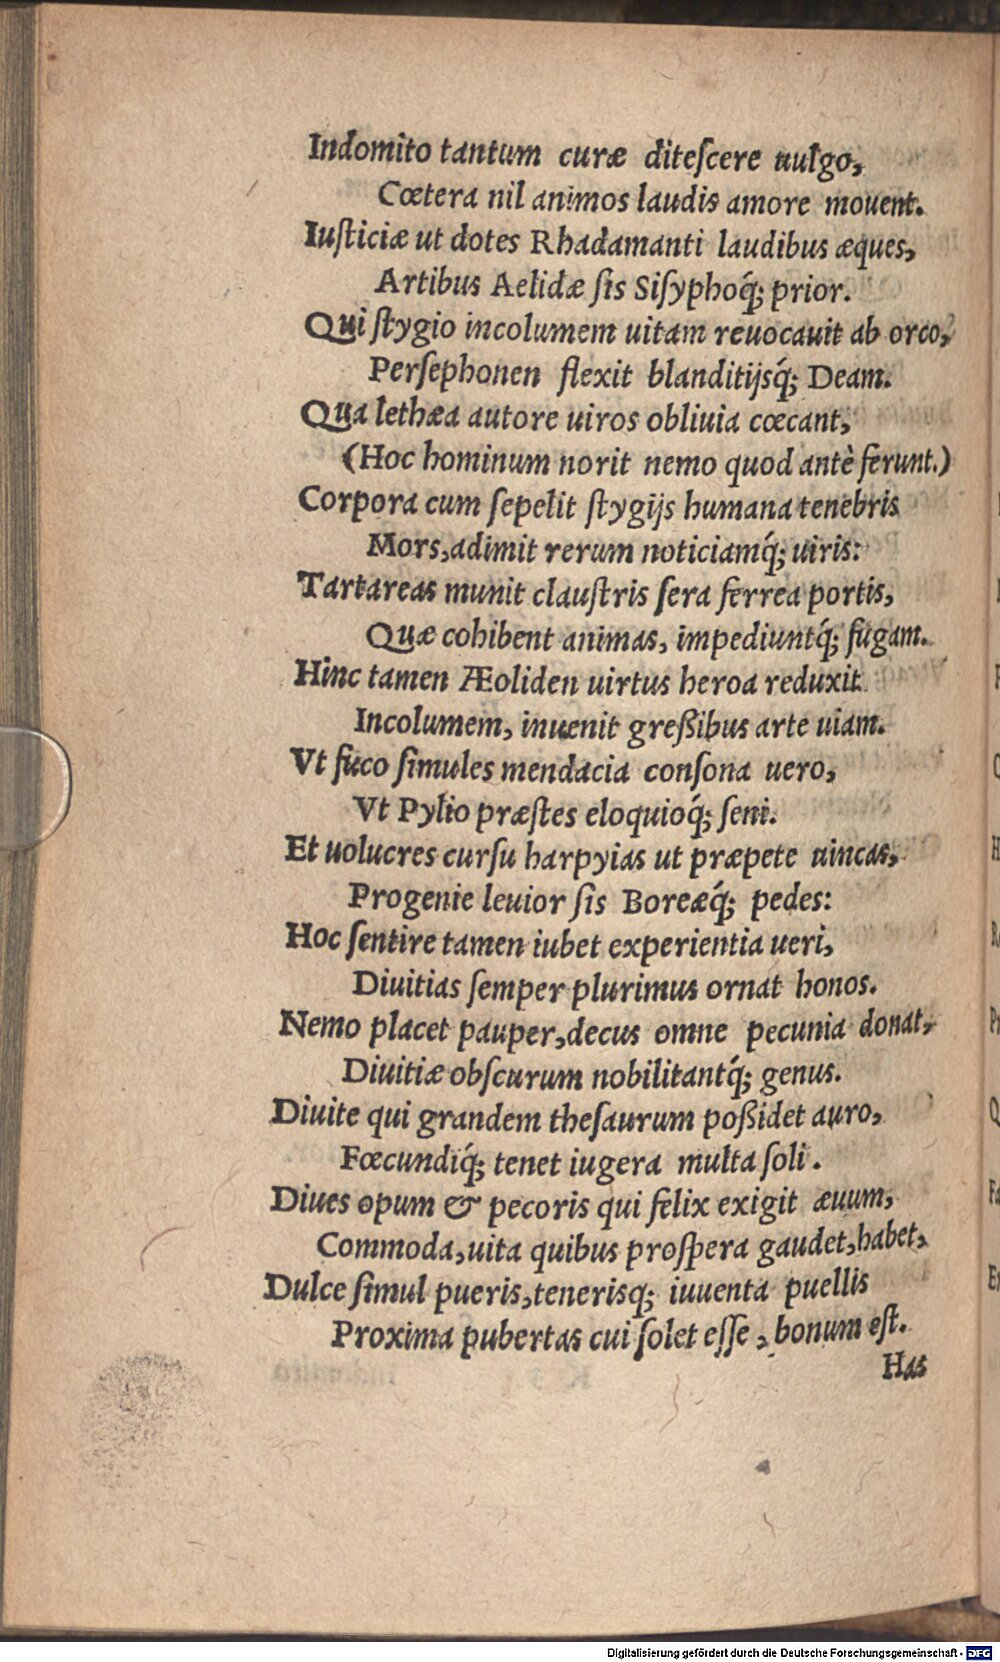 Indomito tantum curæ diteſcere uulgo,
Cœtera nil animos laudis amore mouent.
Iuſticiæ ut dotes Rhadamanti laudibus æques,
Artibus Aelidæ ſis Siſyphoq́; prior.
Qui ſtygio incolumem uitam reuocauit ab orco,
Perſephonen flexit blanditijsq́; Deam.
Qua lethæa autore uiros obliuia cœcant,
(Hoc hominum norit nemo quod antè ferunt.)
Corpora cum ſepelit ſtygijs humana tenebris
Mors, adimit rerum noticiamq́; uiris:
Tartareas munit clauſtris ſera ferrea portis,
Quæ cohibent animas, impediuntq́; fugam.
Hinc tamen Æoliden uirtus heroa reduxit
Incolumem, inuenit greßibus arte uiam.
Vt fuco ſimules mendacia conſona uero,
Vt Pylio præſtes eloquioq́; ſeni.
Et uolucres curſu harpyias ut præpete uincas,
Progenie leuior ſis Boreæq́; pedes:
Hoc ſentire tamen iubet experientia ueri,
Diuitias ſemper plurimus ornat honos.
Nemo placet pauper, decus omne pecunia donat,
Diuitiæ obſcurum nobilitantq́; genus.
Diuite qui grandem theſaurum poßidet auro,
Fœcundiq́; tenet iugera multa ſoli.
Diues opum & pecoris qui felix exigit æuum,
Commoda, uita quibus proſpera gaudet, habet,
Dulce ſimul pueris, tenerisq; iuuenta puellis
Proxima pubertas cui ſolet eſſe, bonum eſt.
Has
Digitalisierung gefördert durch die Deutsche Forschungsgemeinschaft - DFG